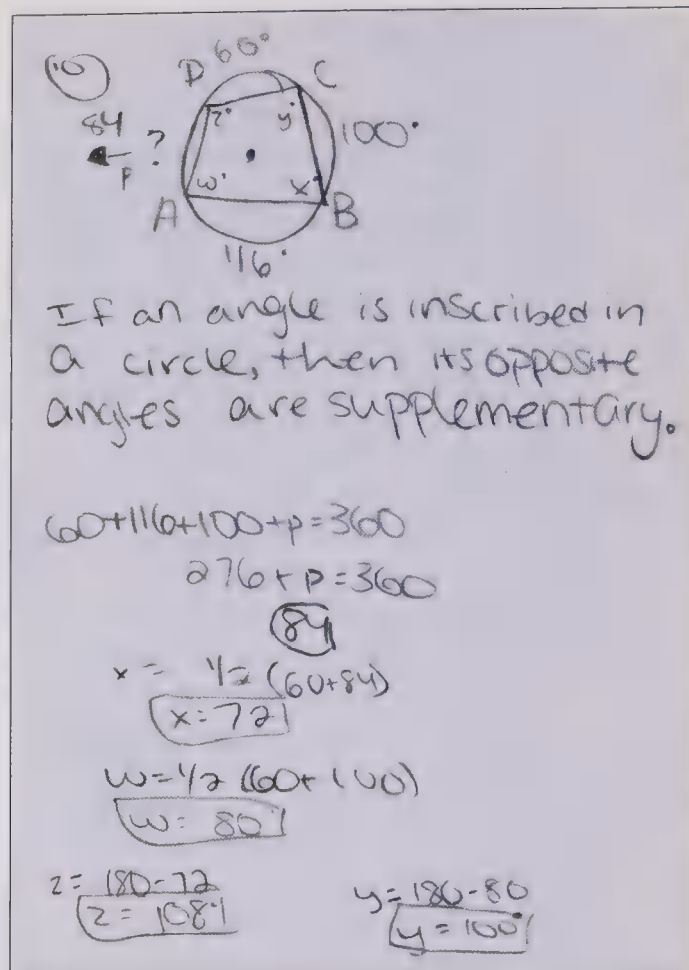 10
D 60° C
84
P ?
z° y°
100°
w° x°
A B
116°
If an angle is inscribed in
a circle, then its opposite
angles are supplementary.
60+116+100+p=360
276+p=360
84
x = 1/2 (60+84)
x=72
w=1/2 (60+100)
w= 80°
z= 180-72
z= 108°
y=180-80
y=100°